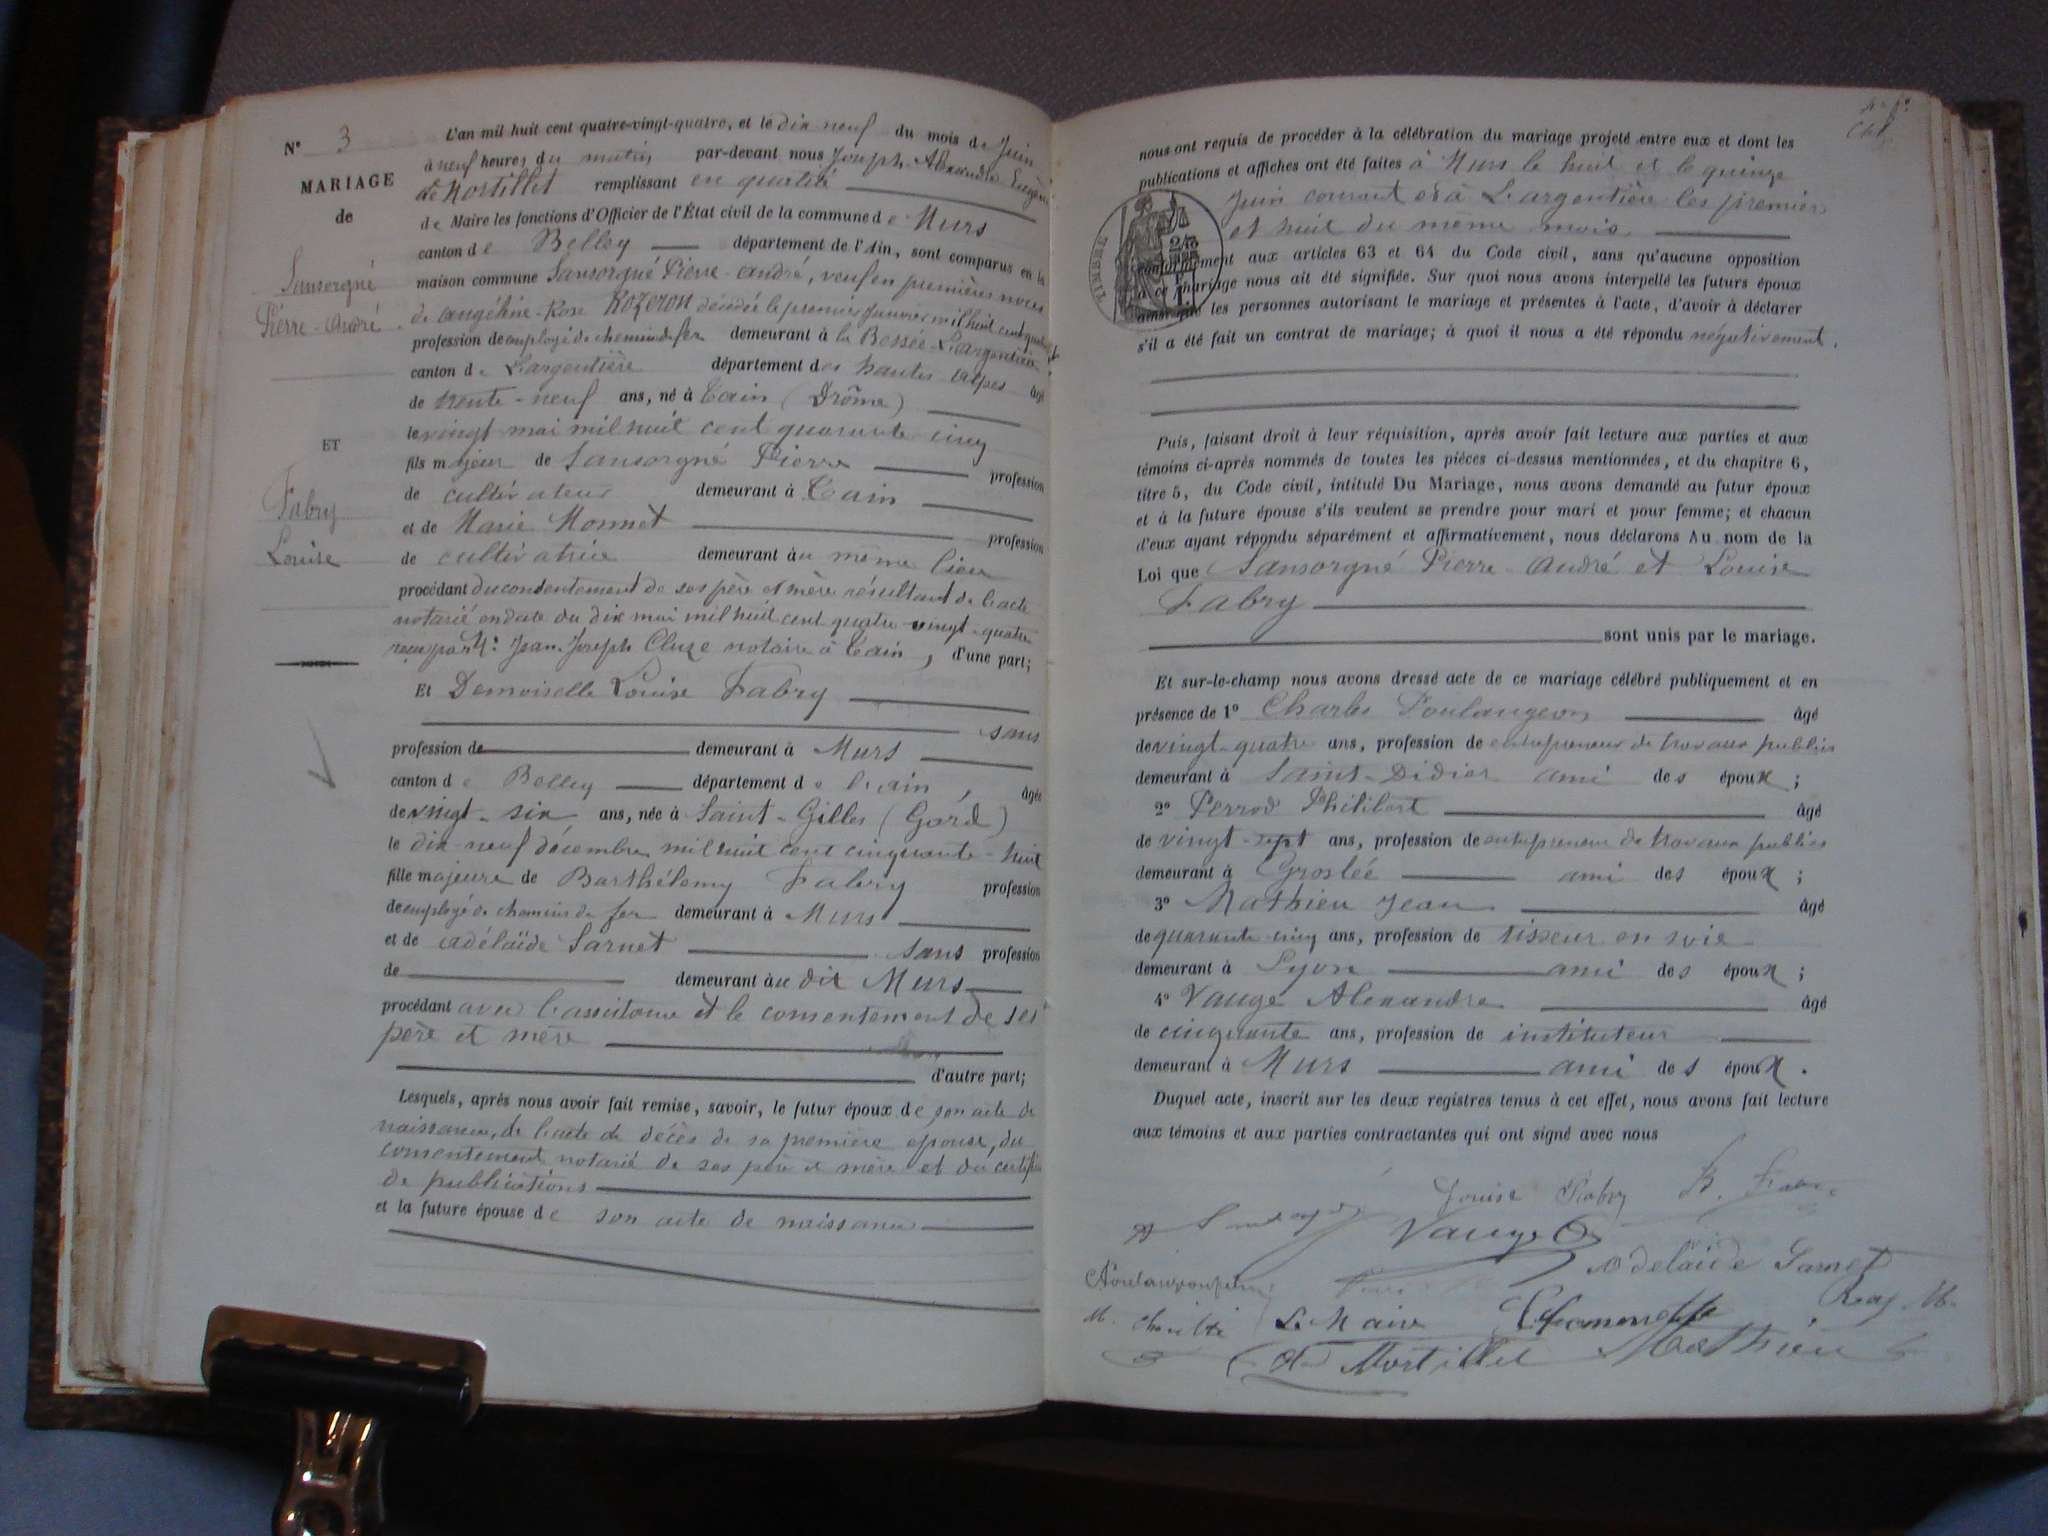 N° 3
MARIAGE
de
Sansorgné
Pierre-André
ET
Fabry
Louise
L'an mil huit cent quatre-vingt-quatre, et le dix neuf du mois de Juin
à neuf heures du matin par-devant nous Joseph Alexandre Eugène
de Mortillet remplissant en qualité
de Maire les fonctions d'Officier de l'État civil de la commune de Murs
canton de Belley département de l'Ain, sont comparus en la
maison commune Sansorgné Pierre-André, veuf en premières noces
de Angéline-Rose Rozeron décédée le premier Janvier mil huit cent
profession de employé de chemin de fer demeurant à la Bessée-Largentière
canton de Largentière département des hautes alpes âgé
de trente-neuf ans, né à Tain (Drôme)
le vingt mai mil huit cent quarante cinq
fils majeur de Sansorgné Pierre profession
de cultivateur demeurant à Tain
et de Marie Monnet profession
de cultivatrice demeurant au même lieu
procédant du consentement de ses père et mère résultant de l'acte
notarié en date du dix mai mil huit cent quatre-vingt-quatre
reçu par M: Jean-Joseph Cluze notaire à Tain, d'une part;
Et Demoiselle Louise Fabry
sans
profession de demeurant à Murs
canton de Belley département de l'ain, âgée
de vingt-six ans, née à Saint-Gilles (Gard)
le dix-neuf décembre mil huit cent cinquante-huit
fille majeure de Barthélemy Fabry profession
de employé de chemins de fer demeurant à Murs
et de Adélaïde Sarnet sans profession
de demeurant au dit Murs
procédant avec l'assistance et le consentement de ses
père et mère
d'autre part;
Lesquels, après nous avoir fait remise, savoir, le futur époux de son acte de
naissance, de l'acte de décès de sa première épouse, du
consentement notarié de ses père et mère et du certificat
de publications
et la future épouse de son acte de naissance
nous ont requis de procéder à la célébration du mariage projeté entre eux et dont les
publications et affiches ont été faites à Murs le huit et le quinze
juin courant et à Largentière les premier
et huit du même mois
TIMBRE
conformément aux articles 63 et 64 du Code civil, sans qu'aucune opposition
à ce mariage nous ait été signifiée. Sur quoi nous avons interpellé les futurs époux
ainsi que les personnes autorisant le mariage et présentes à l'acte, d'avoir à déclarer
s'il a été fait un contrat de mariage; à quoi il nous a été répondu négativement.
Puis, faisant droit à leur réquisition, après avoir fait lecture aux parties et aux
témoins ci-après nommés de toutes les pièces ci-dessus mentionnées, et du chapitre 6,
titre 5, du Code civil, intitulé Du Mariage, nous avons demandé au futur époux
et à la future épouse s'ils veulent se prendre pour mari et pour femme; et chacun
d'eux ayant répondu séparément et affirmativement, nous déclarons Au nom de la
Loi que Sansorgné Pierre-André et Louise
Fabry
sont unis par le mariage.
Et sur-le-champ nous avons dressé acte de ce mariage célébré publiquement et en
présence de 1° Charles Poulangeon âgé
de vingt-quatre ans, profession de entrepreneur de travaux publics
demeurant à Saint-Didier ami des époux;
2° Perrod Philibert âgé
de vingt-sept ans, profession de entrepreneur de travaux publics
demeurant à Groslée ami des époux;
3° Mathieu Jean âgé
de quarante-cinq ans, profession de tisseur en soie
demeurant à Lyon ami des époux;
4° Vauge Alexandre âgé
de cinquante ans, profession de instituteur
demeurant à Murs ami des époux.
Duquel acte, inscrit sur les deux registres tenus à cet effet, nous avons fait lecture
aux témoins et aux parties contractantes qui ont signé avec nous
Louise Fabry
Vauge
Adelaïde Sarnet
Le Maire
de Mortillet
Mathieu